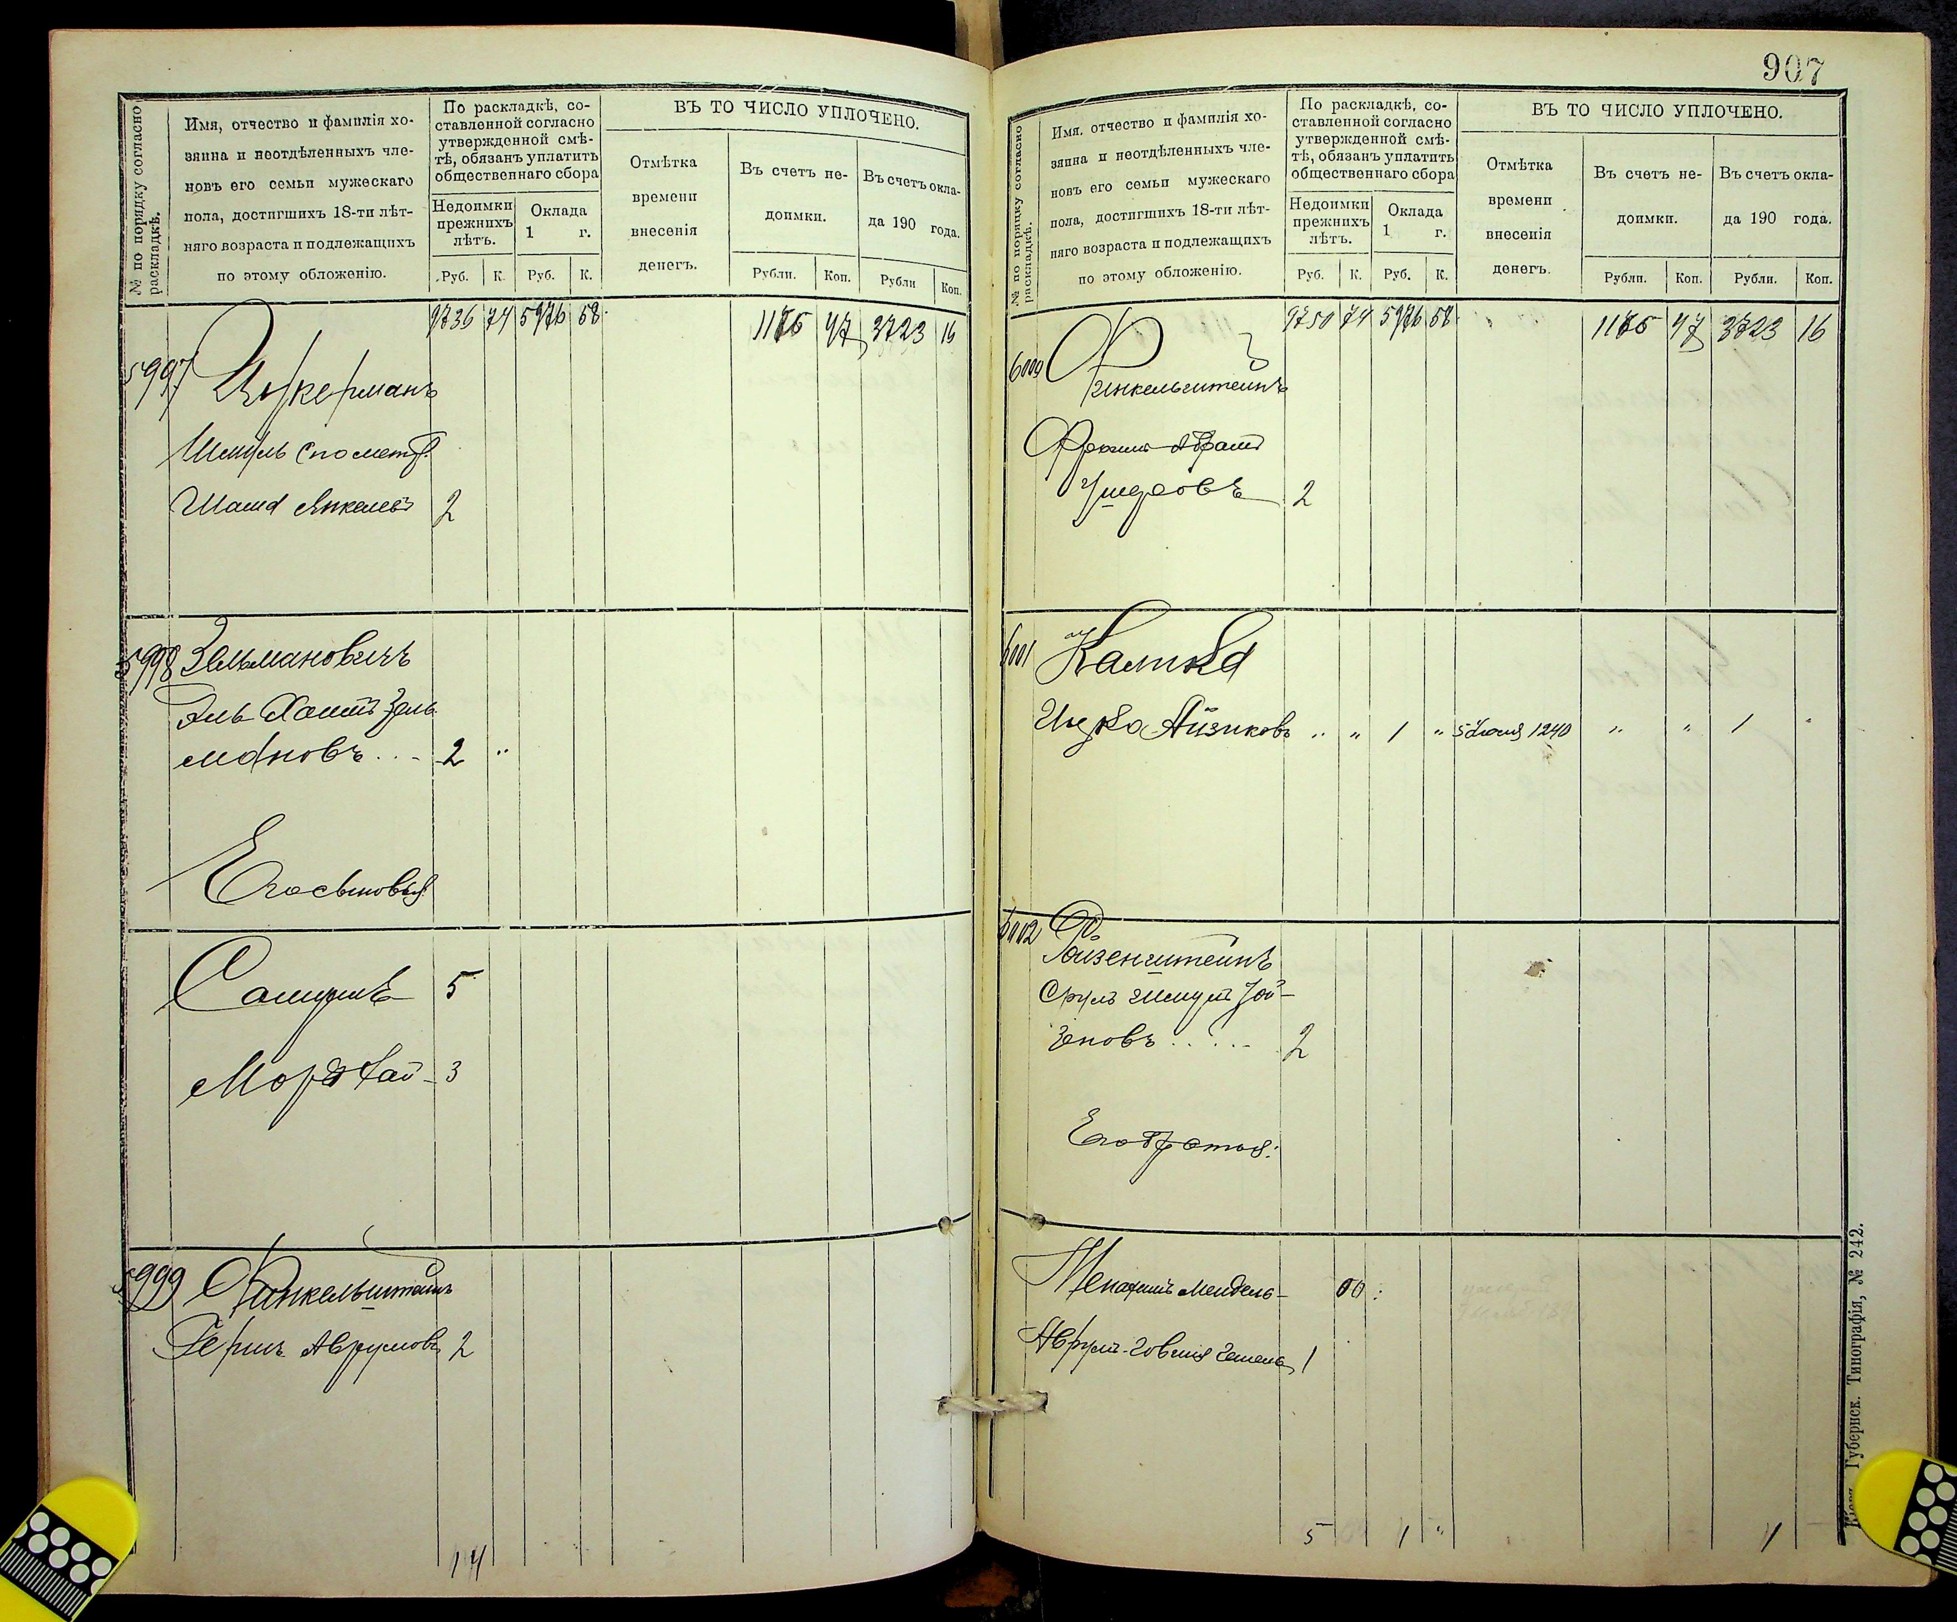 № по порядку согласно раскладкѣ.
Имя, отчество и фамилія хо-
зяина и неотдѣленныхъ чле-
новъ его семьи мужескаго
пола, достигшихъ 18-ти лѣт-
няго возраста и подлежащихъ
по этому обложенію.
По раскладкѣ, со-
ставленной согласно
утвержденной смѣ-
тѣ, обязанъ уплатить
общественнаго сбора
Недоимки
прежнихъ
лѣтъ.
Оклада
1 г.
Руб. К. Руб. К.
ВЪ ТО ЧИСЛО УПЛОЧЕНО.
Отмѣтка
времени
внесенія
денегъ.
Въ счетъ не-
доимки.
Въ счетъ окла-
да 190 года.
Рубли. Коп. Рубли Коп.
9736 74 5976 58 1175 47 3723 16
5997 Цукерманъ
Шмуль
Янкелевъ 2
5998 Зельмановичъ
Хаимъ Зель
мановъ 2 "
Его сыновья
Самуилъ 5
Мордхай 3
5999 Финкельштейнъ
Гершъ Аврумовъ 2
14
907
№ по порядку согласно раскладкѣ.
Имя, отчество и фамилія хо-
зяина и неотдѣленныхъ чле-
новъ его семьи мужескаго
пола, достигшихъ 18-ти лѣт-
няго возраста и подлежащихъ
по этому обложенію.
По раскладкѣ, со-
ставленной согласно
утвержденной смѣ-
тѣ, обязанъ уплатить
общественнаго сбора
Недоимки
прежнихъ
лѣтъ.
Оклада
1 г.
Руб. К. Руб. К.
ВЪ ТО ЧИСЛО УПЛОЧЕНО.
Отмѣтка
времени
внесенія
денегъ.
Въ счетъ не-
доимки.
Въ счетъ окла-
да 190 года.
Рубли. Коп. Рубли. Коп.
9750 74 5976 58 1175 47 3723 16
6000 Финкельштейнъ
Фроимъ Абрамъ
Ушеровъ 2
6001 Калика
Ицко Айзиковъ " " 1 " 5 1240 " " 1 "
6002 Файзенштейнъ
Сруль Шмуль
зеповъ 2
Его братья:
Менахимъ Мендель 00
Аврум 1
5 1 " 1
Губернск. Типографія, № 242.